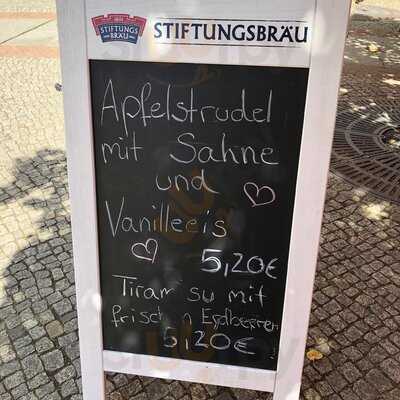 STIFTUNGS
BRÄU
STIFTUNGSBRÄU
Apfelstrudel
mit Sahne
und
Vanilleeis
5,20€
mit
Erdbeeren
5,20€